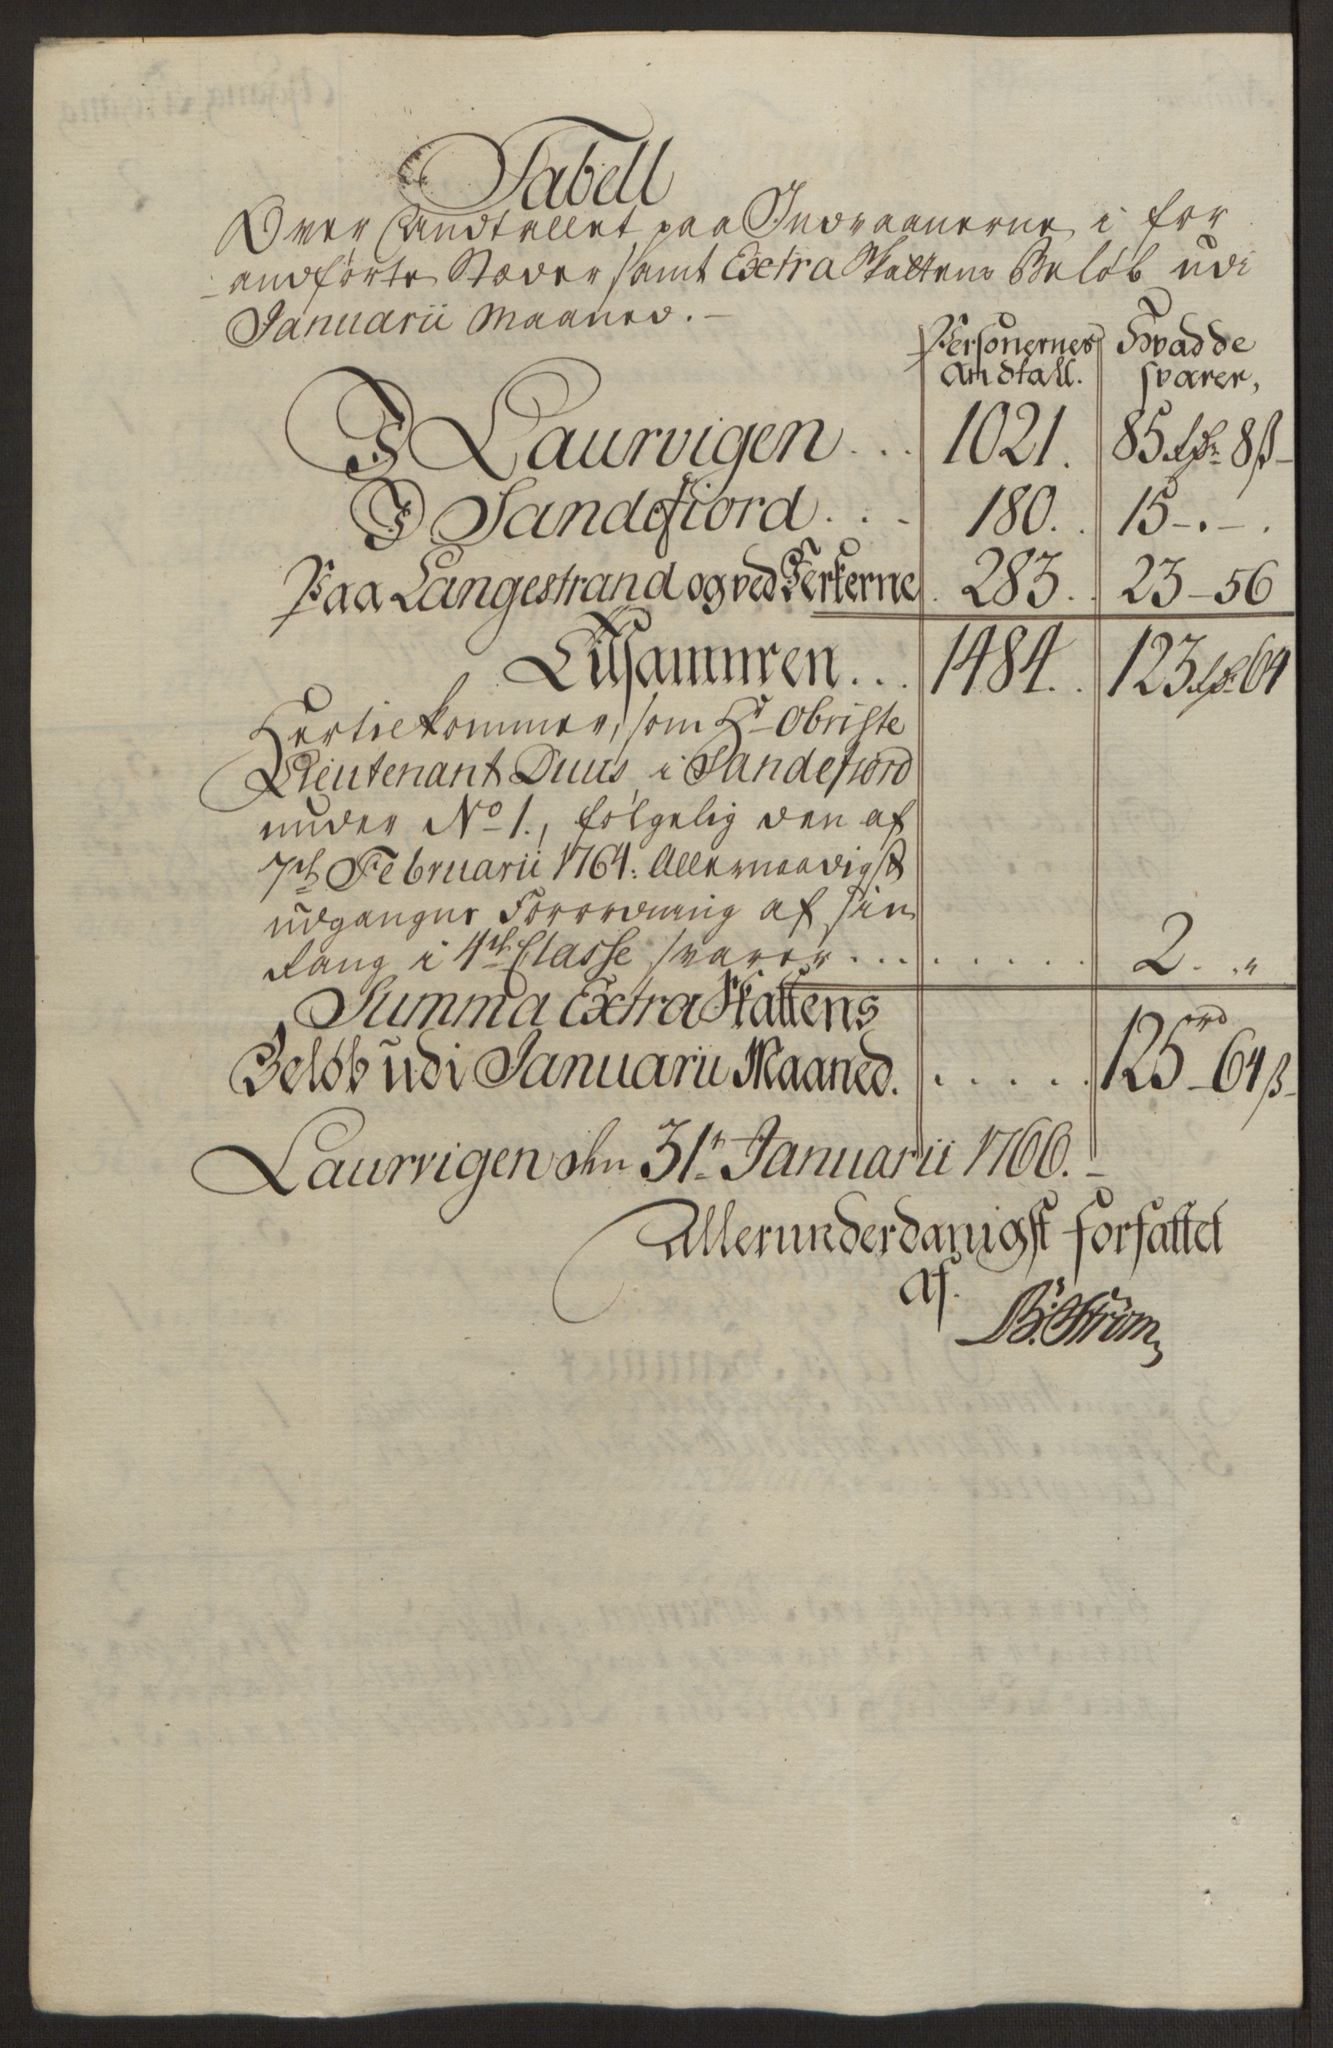 Tabell
Over Andtallet paa Indvaanerne i for
andførte Stæder samt Extra Skattens Beløb udi
Januarii Maaned. –
Personernes Hvad de
Andtall. svarer,
I Laurvigen . . . 1021. 85 rdr 8 ß –
I Sandefiord . . . 180. 15 – . – .
Paa Langestrand og ved Verkerne . 283. 23 – 56
Tilsammen . . . 1484. 123 rdr 64
Hertil kommer, som Hr Obriste
Lieutenant Duus, i Sandefiord
under No 1., følgelig den af
7de Februarii 1764: Allernaadigst
udgangne Forordning af sin
Rang i 4de Classe svarer . . . . . . . . 2. . „
Summa Extra Skattens
Beløb udi Januarii Maaned. . . . . . 125 rd – 64 ß –
Laurvigen den 31te Januarii 1766. –
Allerunderdanigst forfattet
af.
B: Strøm